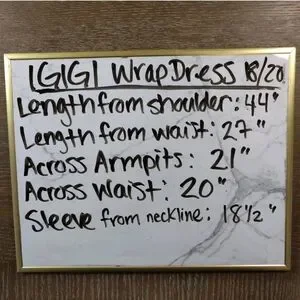 IGIGI Wrap Dress 18/20
Length from shoulder: 44"
Length from waist: 27"
Across Armpits: 21"
Across Waist: 20"
Sleeve from neckline: 18 1/2"